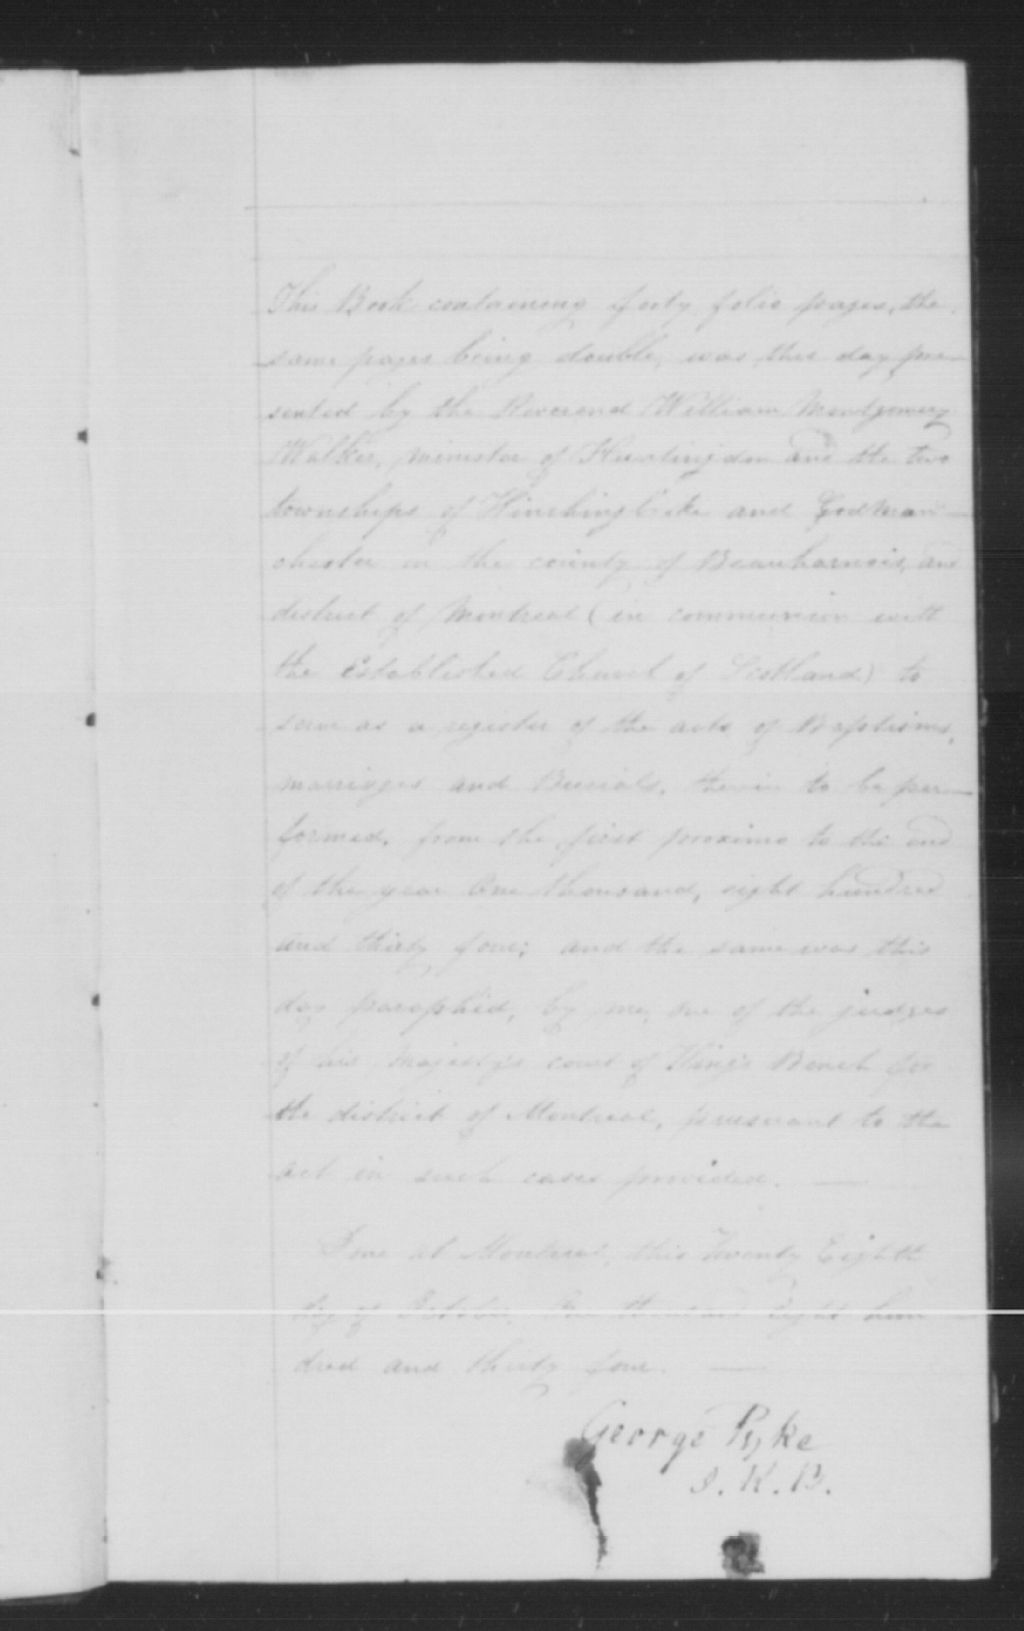 This Book containing forty folio pages, the
same pages being double, was this day pre-
sented by the Reverend William Montgomery
Walker, minister of Huntingdon and the two
townships of Hinchingbroke and Godman-
chester in the county of Beauharnois, and
district of Montreal (in communion with
the Established Church of Scotland) to
serve as a register of the acts of Baptisms,
marriages and Burials, therein to be per-
formed, from the first proximo to the end
of the year One thousand, eight hundred
and thirty four; and the same was this
day paraphed, by me, one of the judges
of his Majesty's court of King's Bench for
the district of Montreal, pursuant to the
act in such cases provided. —
Done at Montreal, this Twenty Eighth
day of October, One thousand eight hun-
dred and thirty four. —
George Pyke
J. K. B.